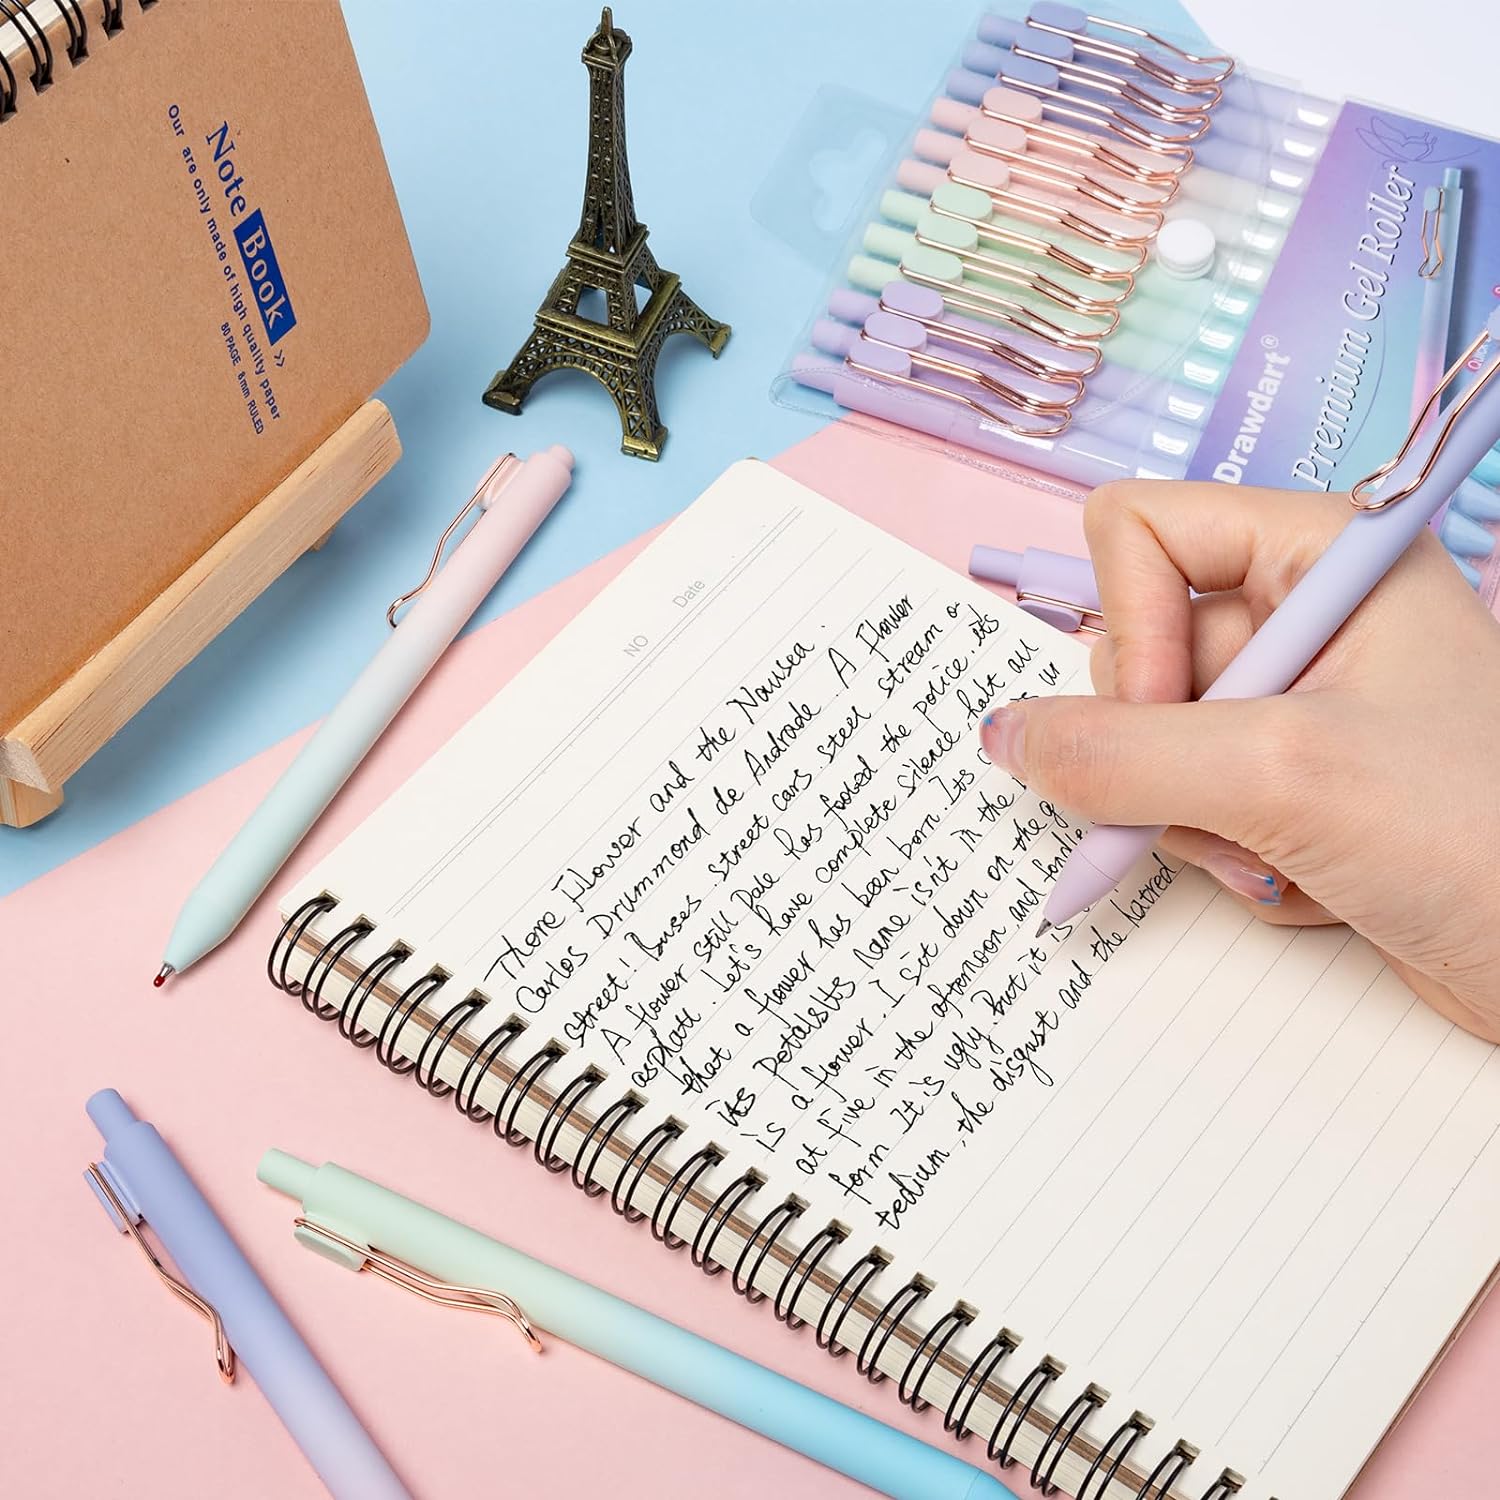 Note Book
Our are only made of high quality paper
80 PAGE 8mm RULED
Drawdart®
Premium Gel Roller
NO
Date
There Flower and the Nausea.
Carlos Drummond de Andrade. A Flower
street! Buses. street cars. steel stream o
A flower still pale has fooled the police. its
asphatt. Let's have complete silence, halt all
that a flower has been born. Its
its petalsIts name isn't in the
is a flower. I sit down on the g
at five in the afternoon, and fondle
form It is ugly. But it is
tedium, the disgust and the hatred